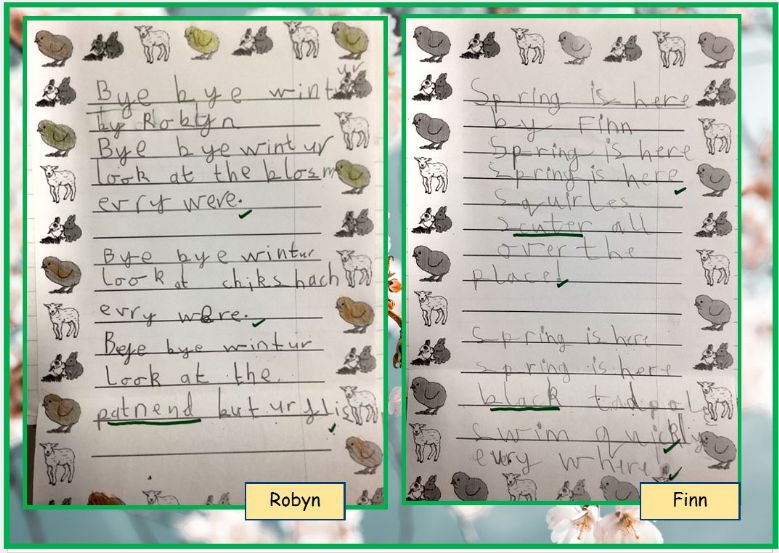 Bye bye wintur
by Robtyn
Bye bye wintur
look at the blosm
evry were.
Bye bye wintur
look at chiks hach
evry were.
Bye bye wintur
Look at the
patnend buturflis
Robyn
Spring is here
by Finn
Spring is here
Spring is here
squirles
scuter all
over the
place!
Spring is here
spring is here
black tadpol
swim quickly
evury where!
Finn